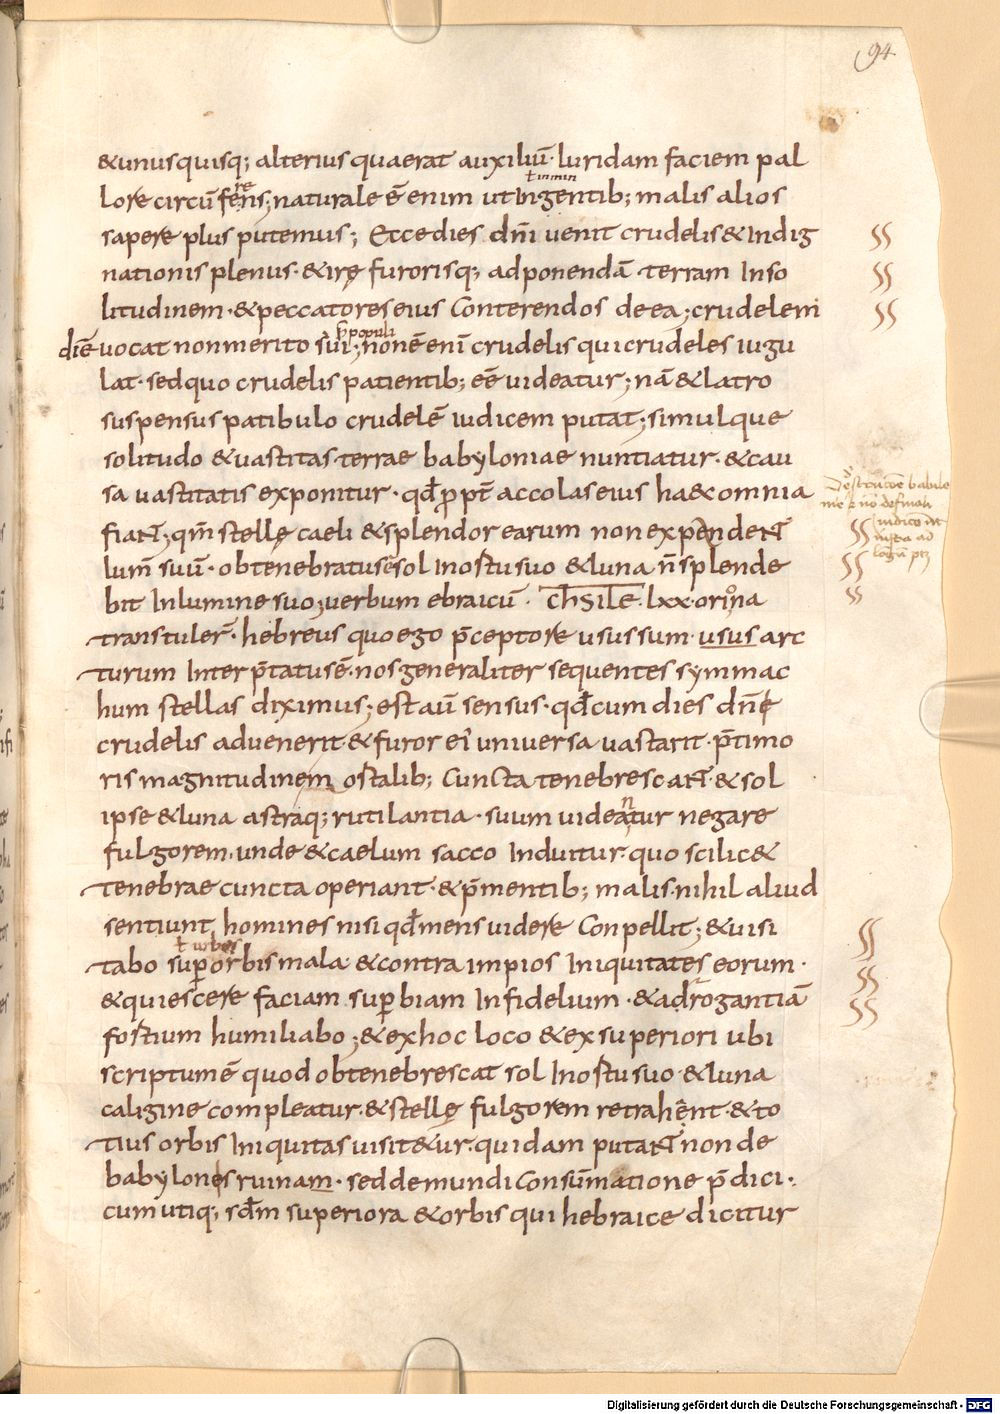 94
&unusquisq; alterius quaerat auxiliū· luridam faciem pal
lore circū ferens; naturale ē enim ut Ingentib; malis alios
ł inmin
sapere plus putemus; Ecce dies dn̄i uenit crudelis & Indig
nationis plenus· & irę furorisq; ad ponendā terram Inso
litudinem· & peccatores eius Conterendos de ea; crudelem
diē uocat non merito sui; non ē enī crudelis qui crudeles iugu
populi
lat· sed quo crudelis patientib; eē uideatur; nā & latro
suspensus patibulo crudelē iudicem putat; simulque
solitudo & uastitas terrae babyloniae nuntiatur· & cau
sa uastitatis exponitur· qd̄ ꝓpt̄ accolas eius haec omnia
fiant; qm̄ stellę caeli & splendor earum non expendent
lum̄ suū· obtenebratus ē sol Inostu suo & luna n̄ splende
bit Inlumine suo; uerbum ebraicū· ChSILE· lxx· oriona
transtuler̄· hebreus quo ego p̄ceptore usus sum· usus arc
turum Interp̄tatus ē· nos generaliter sequentes symmac
hum stellas diximus; est aū sensus· qd̄ cum dies dn̄e
crudelis aduenerit· & furor ei' uniuersa uastarit· p̄timo
ris magnitudinem ostalib; Cuncta tenebrescant· & sol
ipse & luna astraq; rutilantia· suum uideantur negare
fulgorem· unde & caelum sacco Induitur· quo scilic&
tenebrae cuncta operiant· & p̄mentib; malis· nihil aliud
sentiunt homines nisi qd̄ mens uidere Conpellit; & uisi
ł urbes
tabo super orbis mala· & contra impios Iniquitates eorum·
& quiescere faciam superbiam Infidelium· & adrogantiā
fostium humiliabo; & ex hoc loco & ex superiori ubi
scriptum ē quod obtenebrescat sol Inostu suo· & luna
caligine compleatur· & stellę fulgorem retrahent· & to
tius orbis Iniquitas uisit&ur· quidam putant non de
babylones ruinam· sed de mundi Consūmatione p̄dici·
cum utiq; sd̄m superiora & orbis qui hebraice dicitur
Digitalisierung gefördert durch die Deutsche Forschungsgemeinschaft - DFG